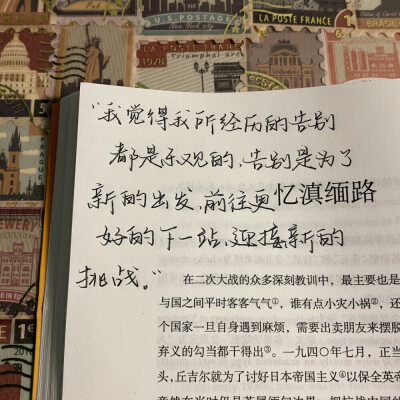 U.S. POSTAGE
LA POSTE FRANCE
BRASIL
LA POSTE FRANCE
1978
"我觉得我所经历的告别
都是乐观的,告别是为了
新的出发,前往更 忆滇缅路
好的下一站,迎接新的
挑战。"
在二次大战的众多深刻教训中,最主要也是
与国之间平时客客气气①,谁有点小灾小祸②,还
个国家一旦自身遇到麻烦,需要出卖朋友来摆脱
弃义的勾当都干得出③。一九四〇年七月,正当
头,丘吉尔就为了讨好日本帝国主义④以保全英帝